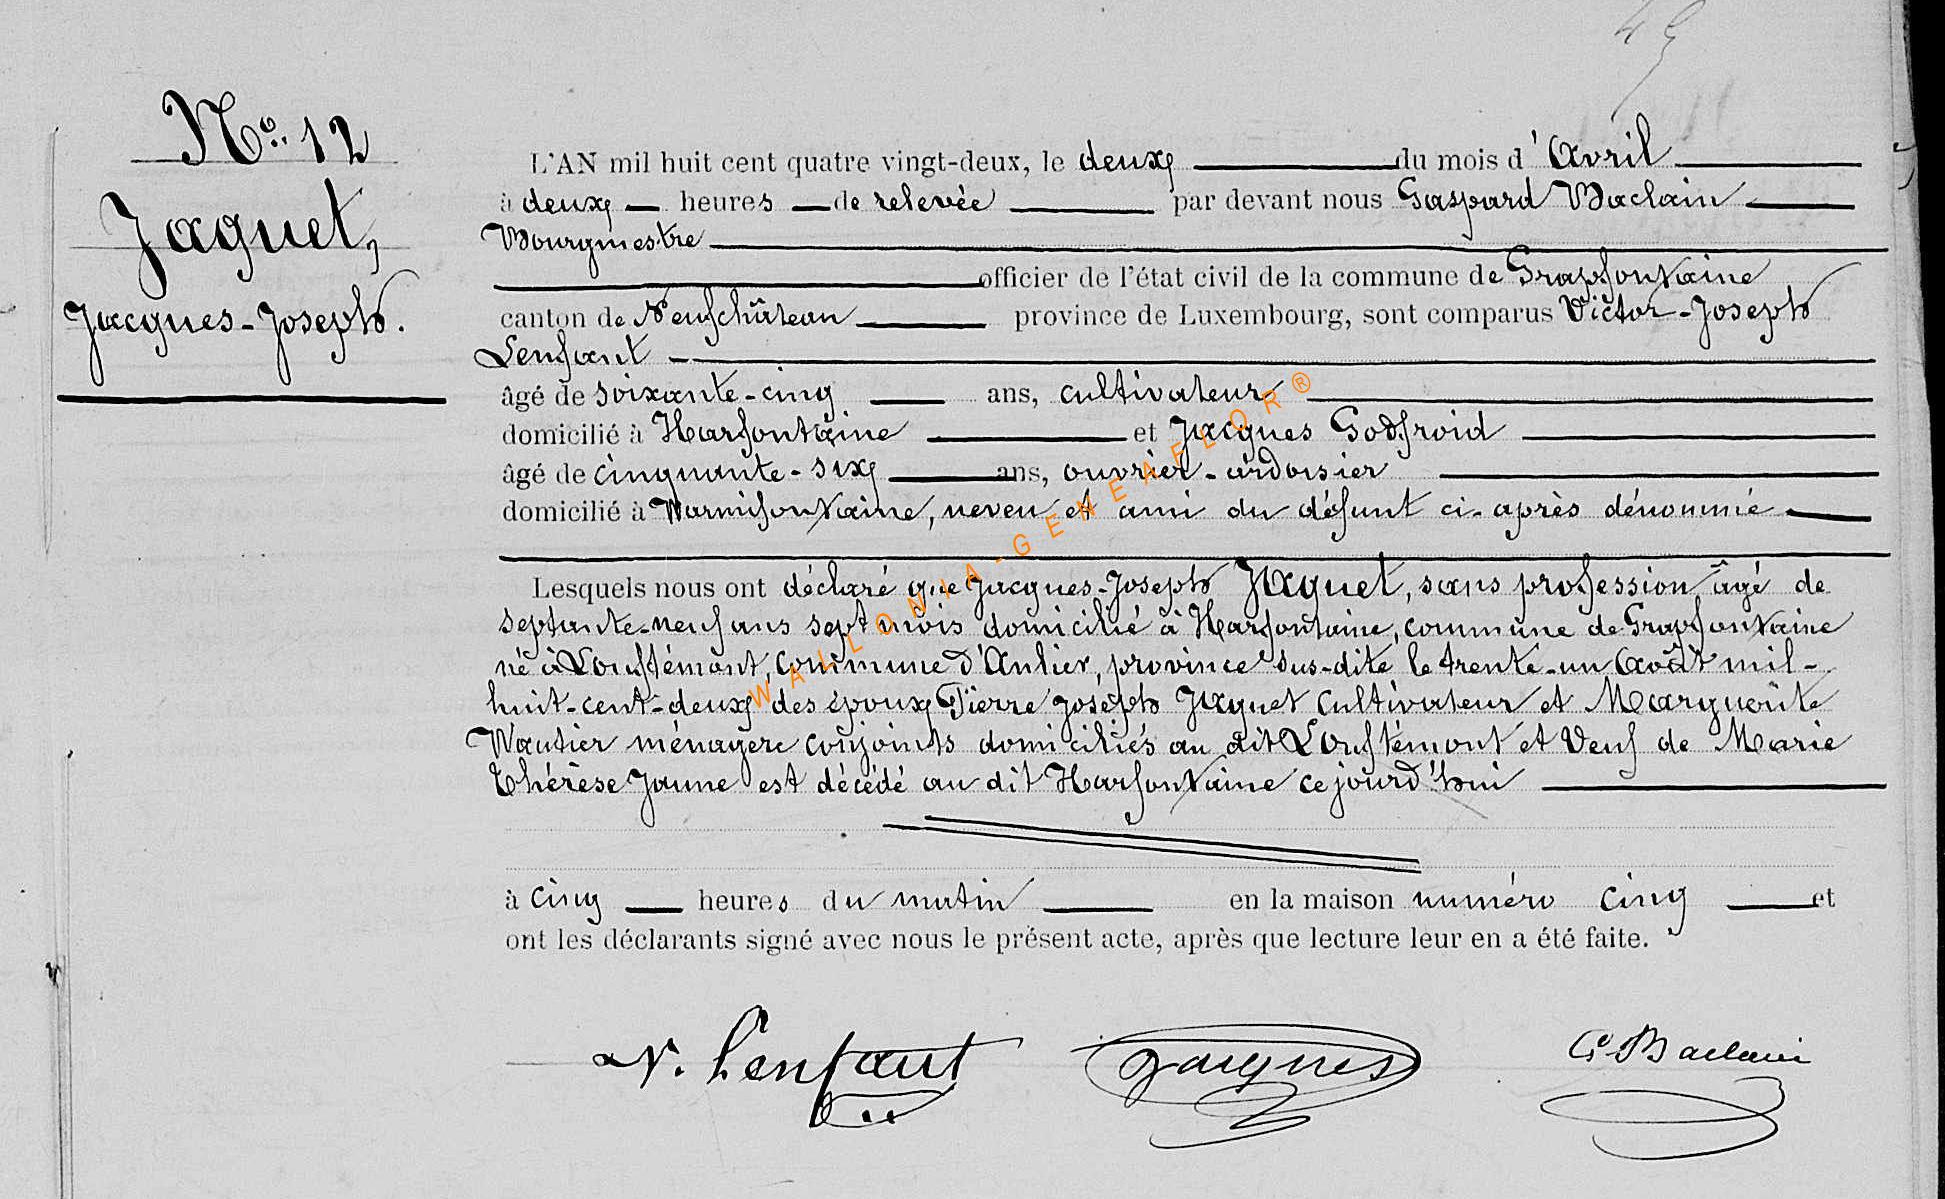 45
No. 12
Jaquet,
Jacques-Joseph.
L'AN mil huit cent quatre vingt-deux, le deux du mois d'Avril
à deux heures de relevée par devant nous Gaspard Baclain
Bourgmestre
officier de l'état civil de la commune de Grapfontaine
canton de Neufchâteau province de Luxembourg, sont comparus Victor-Joseph
Lenfant
âgé de soixante-cinq ans, cultivateur
domicilié à Harfontaine et Jacques Godfroid
âgé de cinquante-six ans, ouvrier-ardoisier
domicilié à Warmifontaine, neveu et ami du défunt ci-après dénommé
Lesquels nous ont déclaré que Jacques-Joseph Jaquet, sans profession, âgé de
septante-neuf ans sept mois domicilié à Harfontaine, commune de Grapfontaine
né à Louftémont, commune d'Anlier, province sus-dite le trente-un Août mil-
huit-cent-deux des époux Pierre Joseph Jaquet cultivateur et Marguerite
Wautier ménagère conjoints domiciliés au dit Louftémont et Veuf de Marie
Thérèse Jaune est décédé au dit Harfontaine ce jourd'hui
à cinq heures du matin en la maison numéro cinq et
ont les déclarants signé avec nous le présent acte, après que lecture leur en a été faite.
V. Lenfant Jacques G. Baclain
WALLONIA-GENEAFLOR®